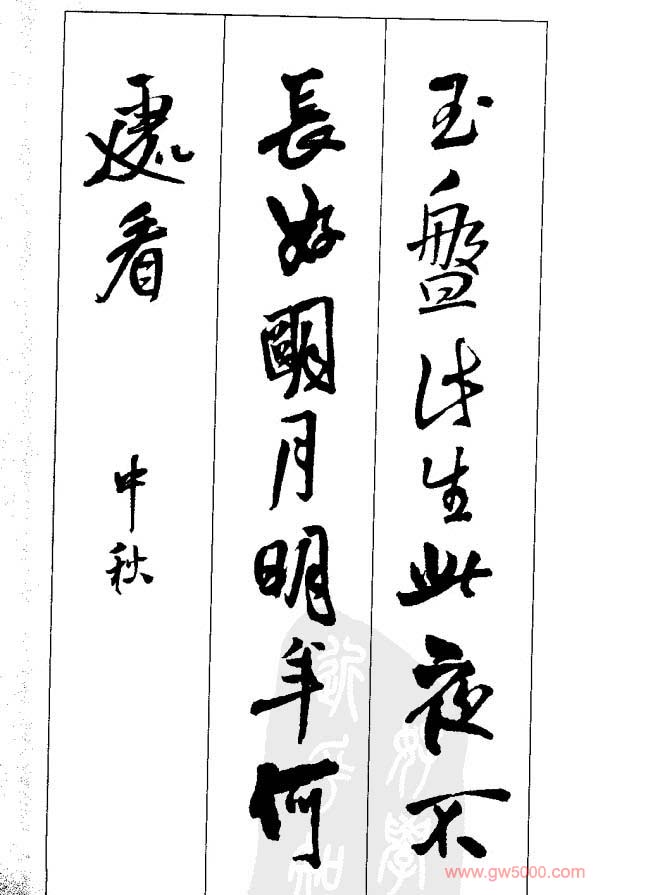 玉盤此生此夜不
長好明月明年何
處看
中秋
www.gw5000.com